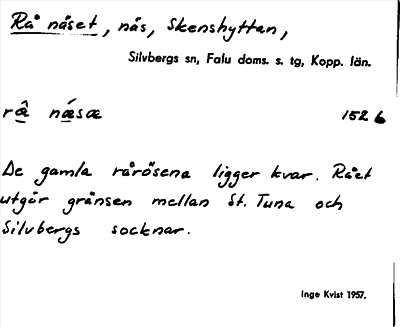 Rå näset, näs, Skenshyttan,
Silvbergs sn, Falu doms. s. tg, Kopp. län.
ræ̂ nǽsæ 1526
De gamla rårösena ligger kvar. Rået
utgör gränsen mellan St. Tuna och
Silvbergs socknar.
Inge Kvist 1957.